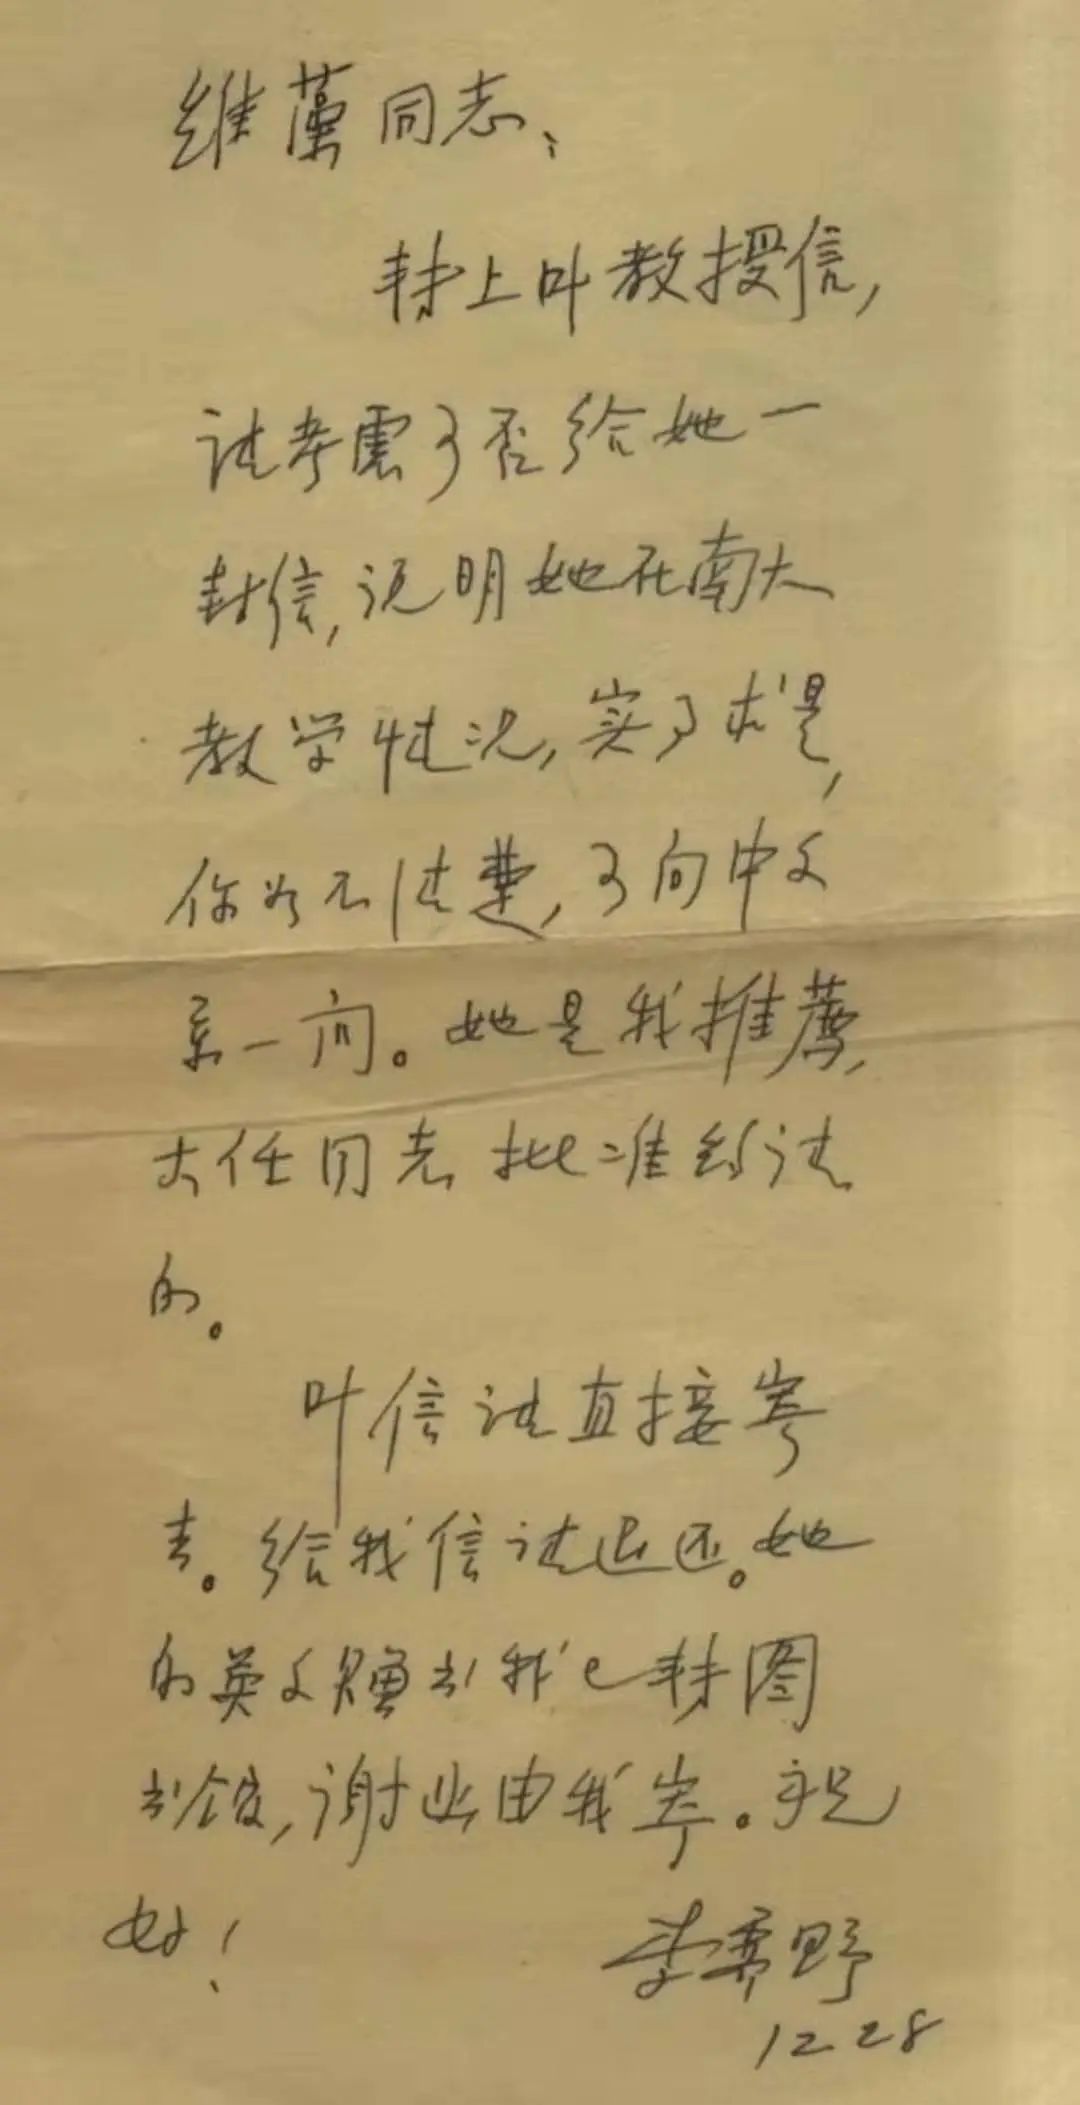 维藻同志：
转上叶教授信，
请考虑可否给她一
封信，说明她在南大
教学情况，实事求是，
你如不清楚，可向中文
系一问。她是我推荐，
大任同志批准约请
的。
叶信请直接寄
去。给我信请退还。她
的英文赠书我已转图
书馆，谢函由我寄。祝
好！
李霁野
12 28